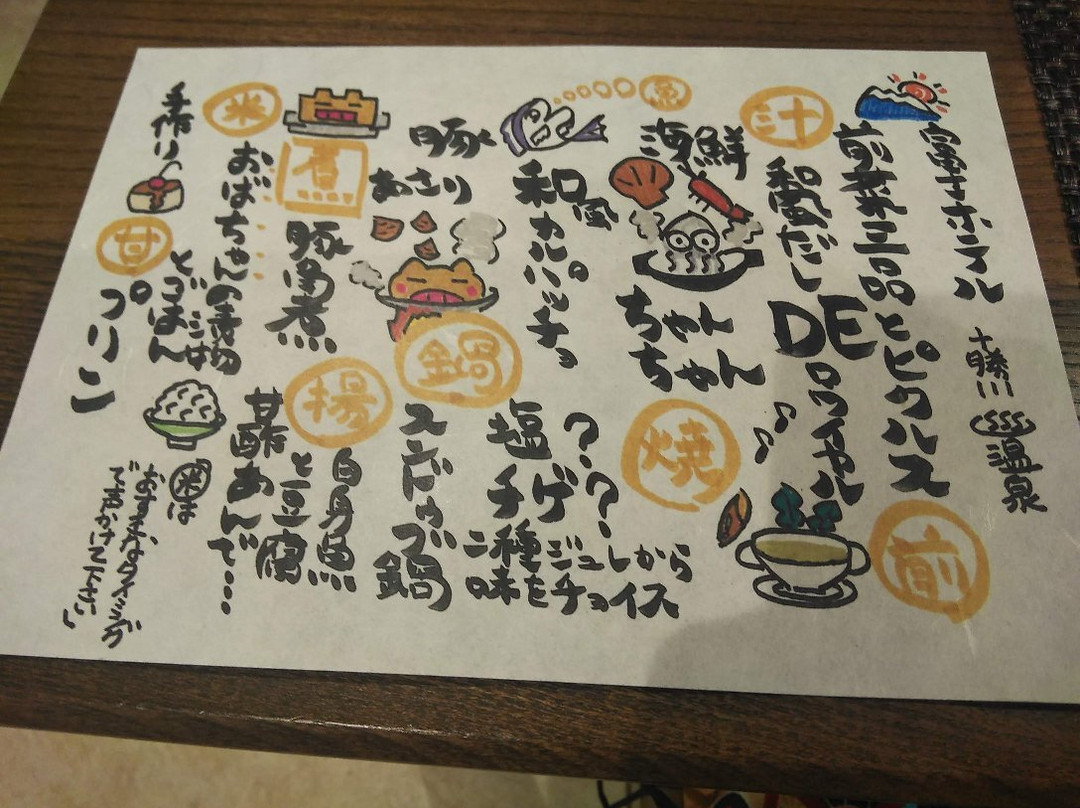 富士ホテル
十勝川温泉
前
前菜三品とピクルス
汁
和風だし
DE
ロワイヤル
魚
和風
カルパッチョ
焼
海鮮
ちゃん
ちゃん
鍋
豚
あさり
スンドゥブ鍋
塩
チゲ
二種
味をチョイス
煮
豚角煮
揚
白身魚
と豆腐
甘酢あんで…
米
おばちゃんの漬物
とごはん
甘
手作り
プリン
米は
おすきなタイミング
で声かけて下さい